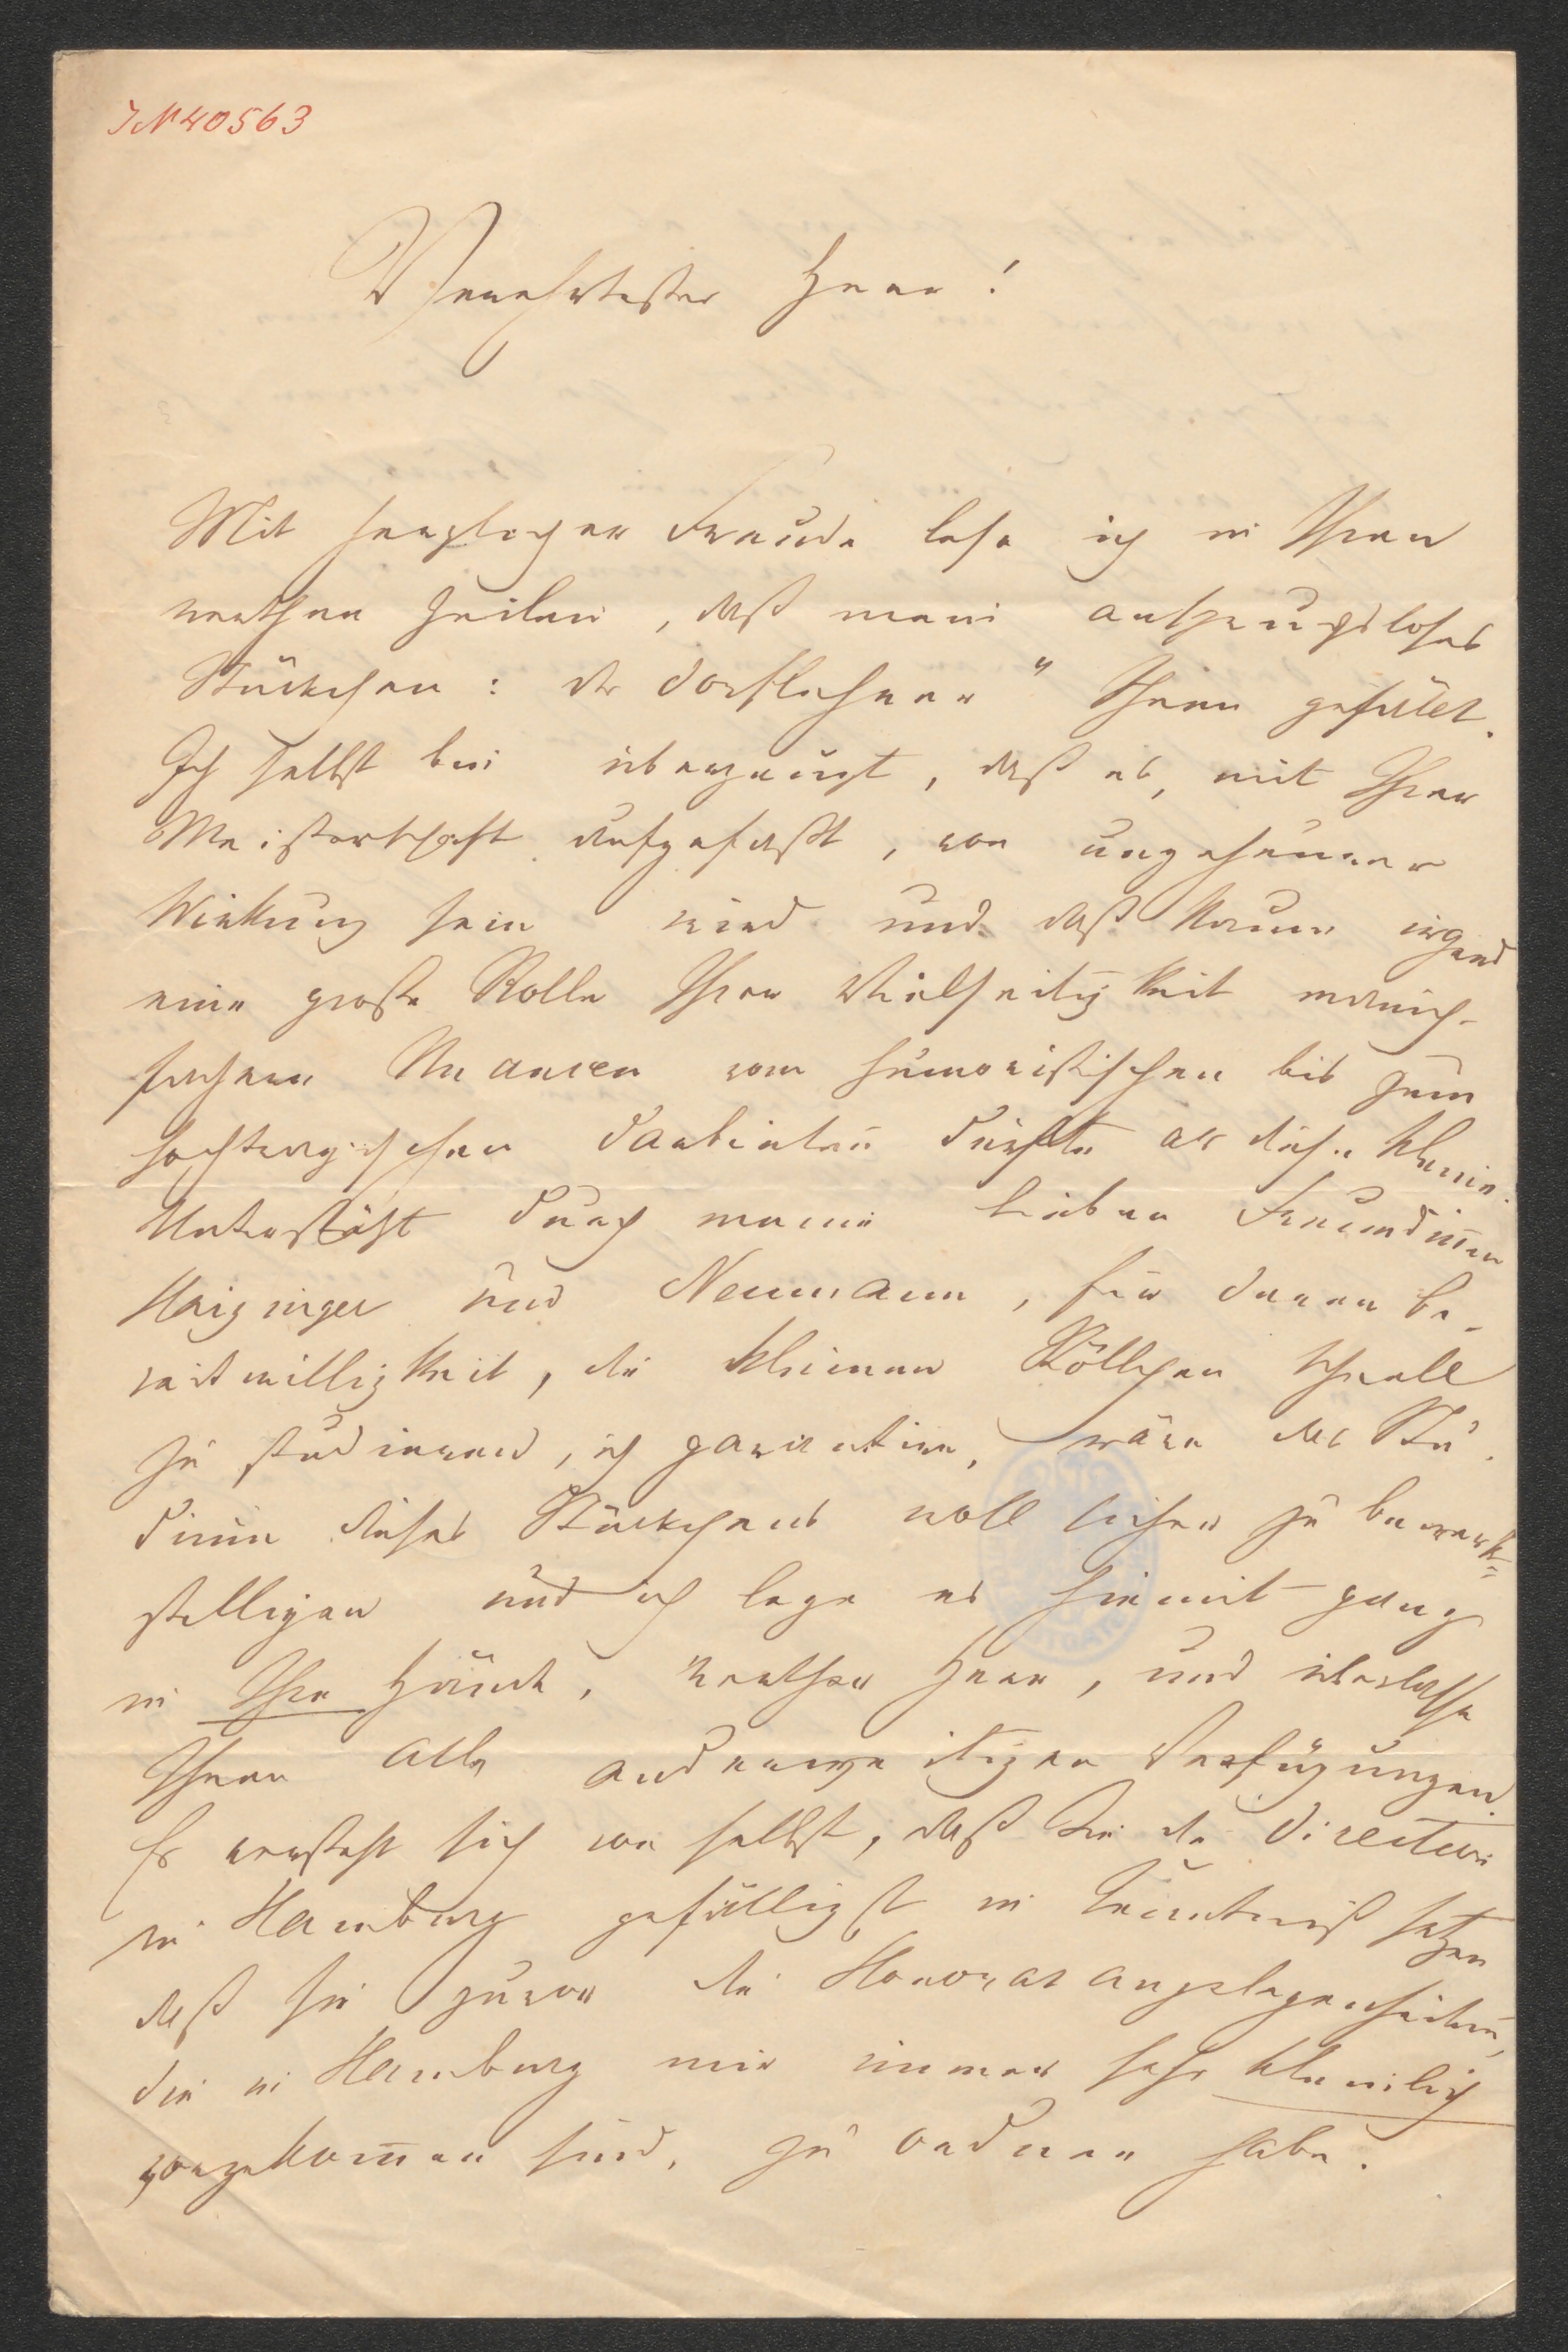 IN 40563
Verehrtester Herr!
Mit herzlicher Freude lese ich in Ihren
werthen Zeilen, daß mein anspruchsloses
Stückchen: der Dorflehrer" Ihnen gefällt.
Ich selbst bin überzeugt, daß es, mit Ihrer
Meisterschaft aufgefaßt, von ungeheurer
Wirkung sein wird und daß kaum irgend
eine große Rolle Ihrer Vielseitigkeit manich-
fachern Nuancen vom humoristischen bis zum
hochtragischen darbieten dürfte als diese kleine.
Unterstützt durch meine lieben Freundinnen
Haizinger und Neumann, für deren be-
reitwilligkeit, die kleinen Röllchen schnell
zu studieren, ich garantire, wäre das Stu-
dium dieses Stückchens wohl sicher zu bewerk=
stelligen und ich lege es hiemit ganz
in Ihre Hände, werther Herr, und überlasse
Ihnen alle anderweitigen Verfügungen.
Es versteht sich von selbst, daß Sie die Direction
in Hamburg gefälligst in Kenntniß setzen
daß sie zuvor die Honorarangelegenheiten,
die in Hamburg mir immer sehr kleinlich
vorgekommen sind, zu ordnen habe.